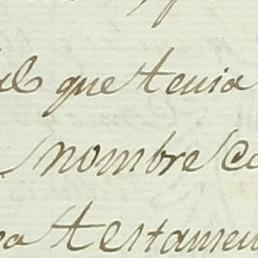 que tenia
nombre
testamen